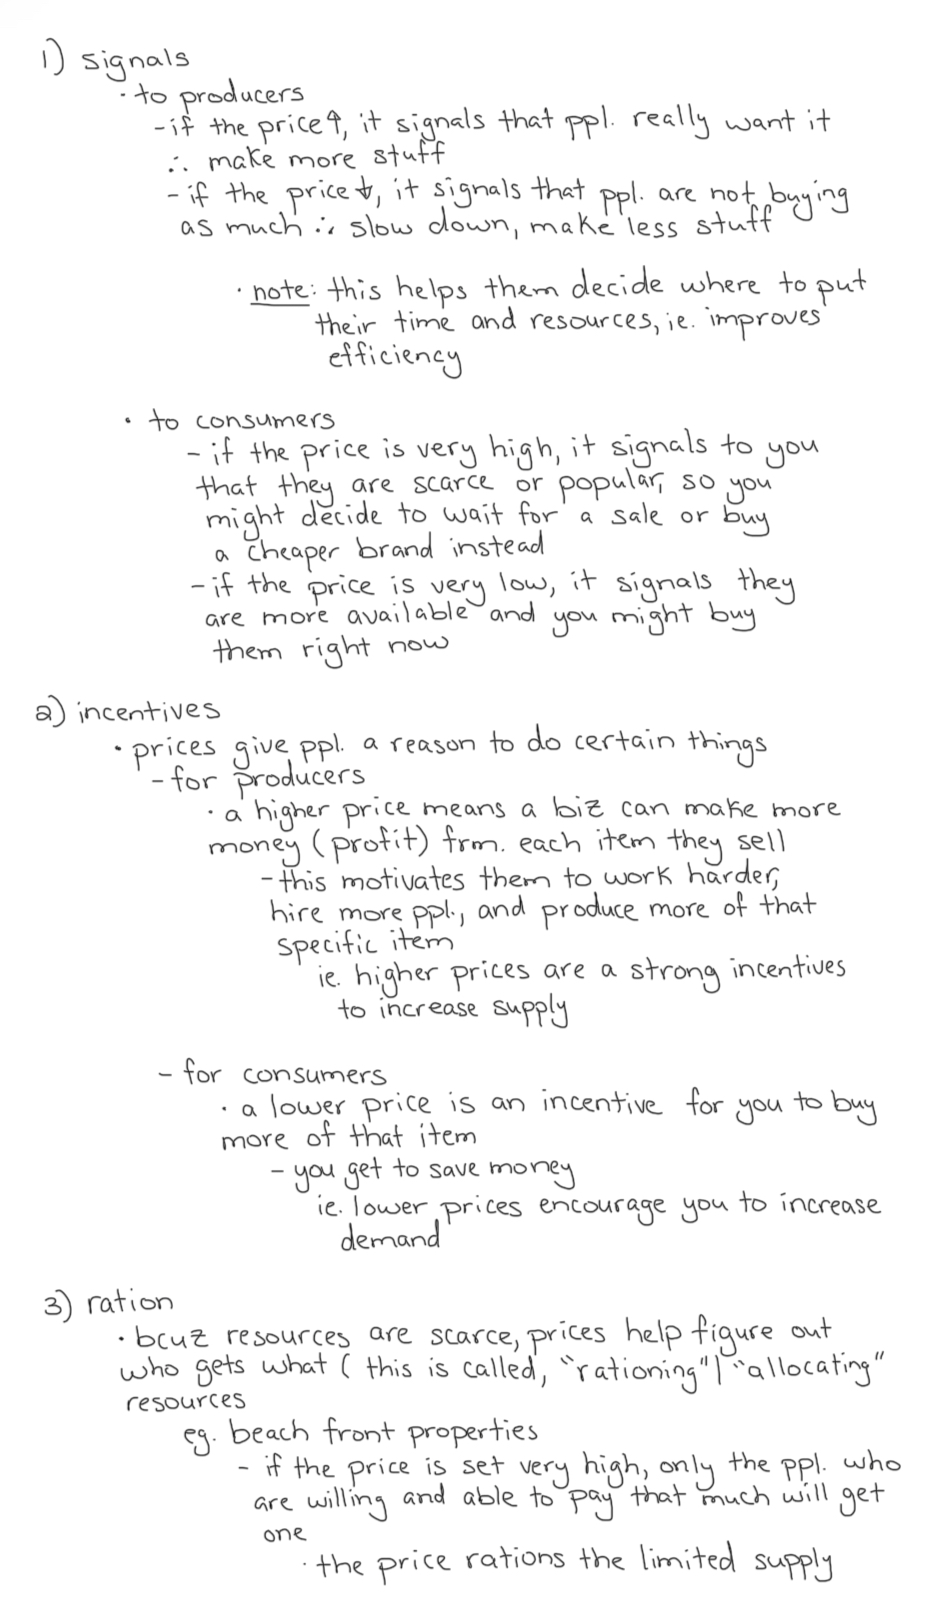 1) signals
· to producers
- if the price↑, it signals that ppl. really want it
∴ make more stuff
- if the price↓, it signals that ppl. are not buying
as much ∴ slow down, make less stuff
· note: this helps them decide where to put
their time and resources, ie. improves
efficiency
· to consumers
- if the price is very high, it signals to you
that they are scarce or popular, so you
might decide to wait for a sale or buy
a cheaper brand instead
- if the price is very low, it signals they
are more available and you might buy
them right now
2) incentives
· prices give ppl. a reason to do certain things
- for producers
· a higher price means a biz can make more
money (profit) frm. each item they sell
- this motivates them to work harder,
hire more ppl., and produce more of that
specific item
ie. higher prices are a strong incentives
to increase supply
- for consumers
· a lower price is an incentive for you to buy
more of that item
- you get to save money
ie. lower prices encourage you to increase
demand
3) ration
· bcuz resources are scarce, prices help figure out
who gets what ( this is called, "rationing" | "allocating"
resources
eg. beach front properties
- if the price is set very high, only the ppl. who
are willing and able to pay that much will get
one
· the price rations the limited supply